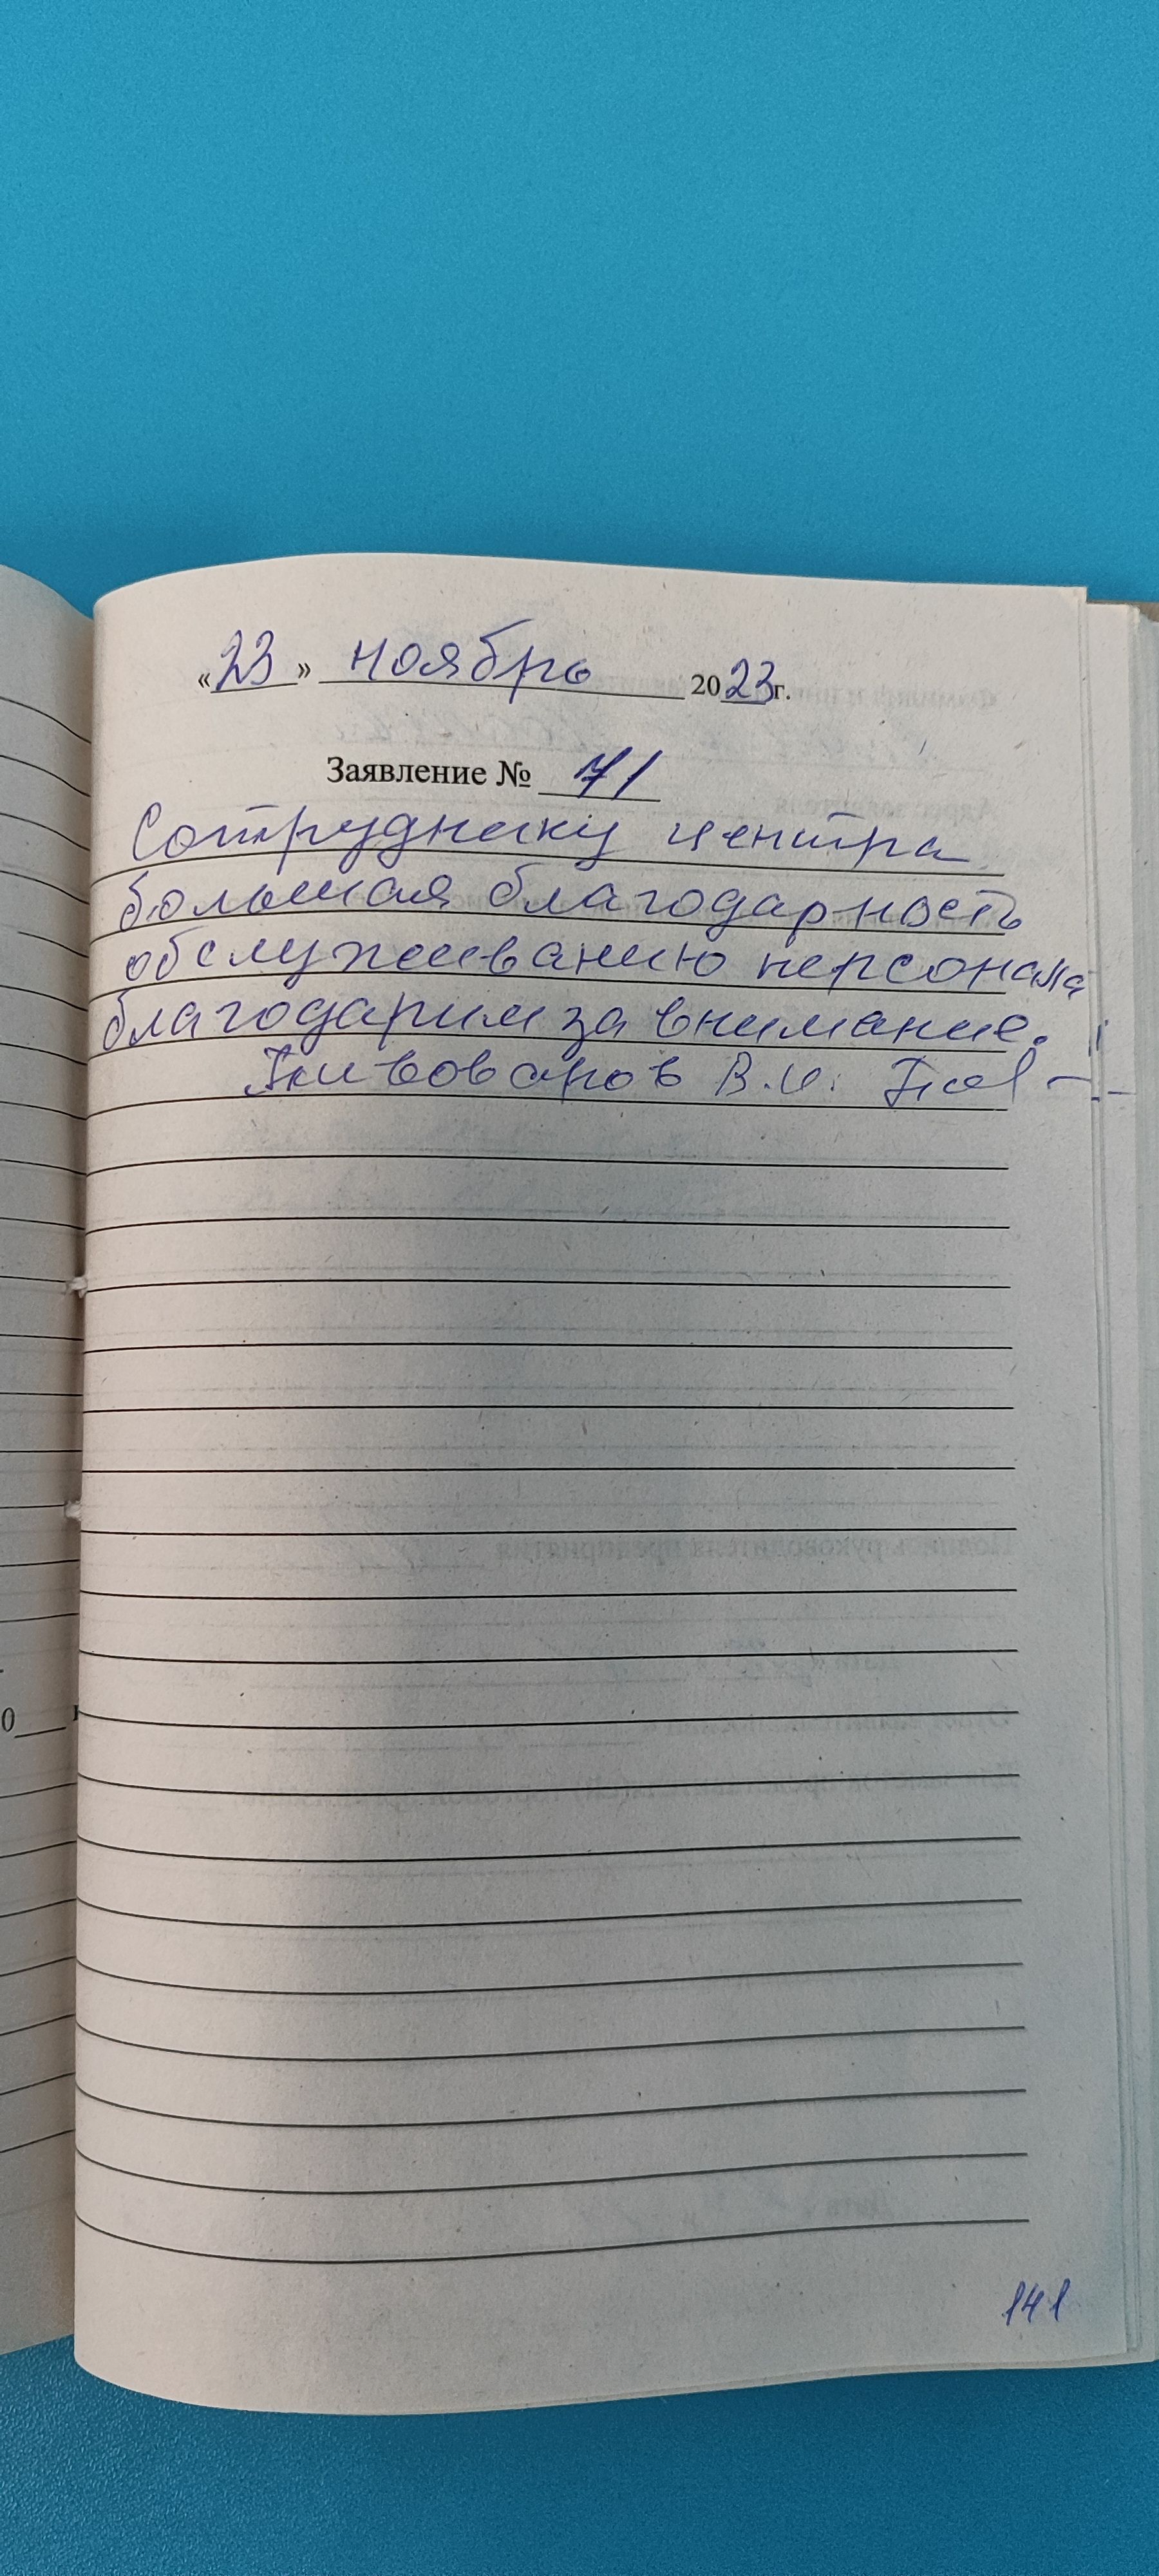 «23» ноябрь 2023г.
Заявление № 71
Сотруднику центра
большая благодарность
обслуживанию персонала
благодарим за внимание.
Пивоваров В.И.
0
141